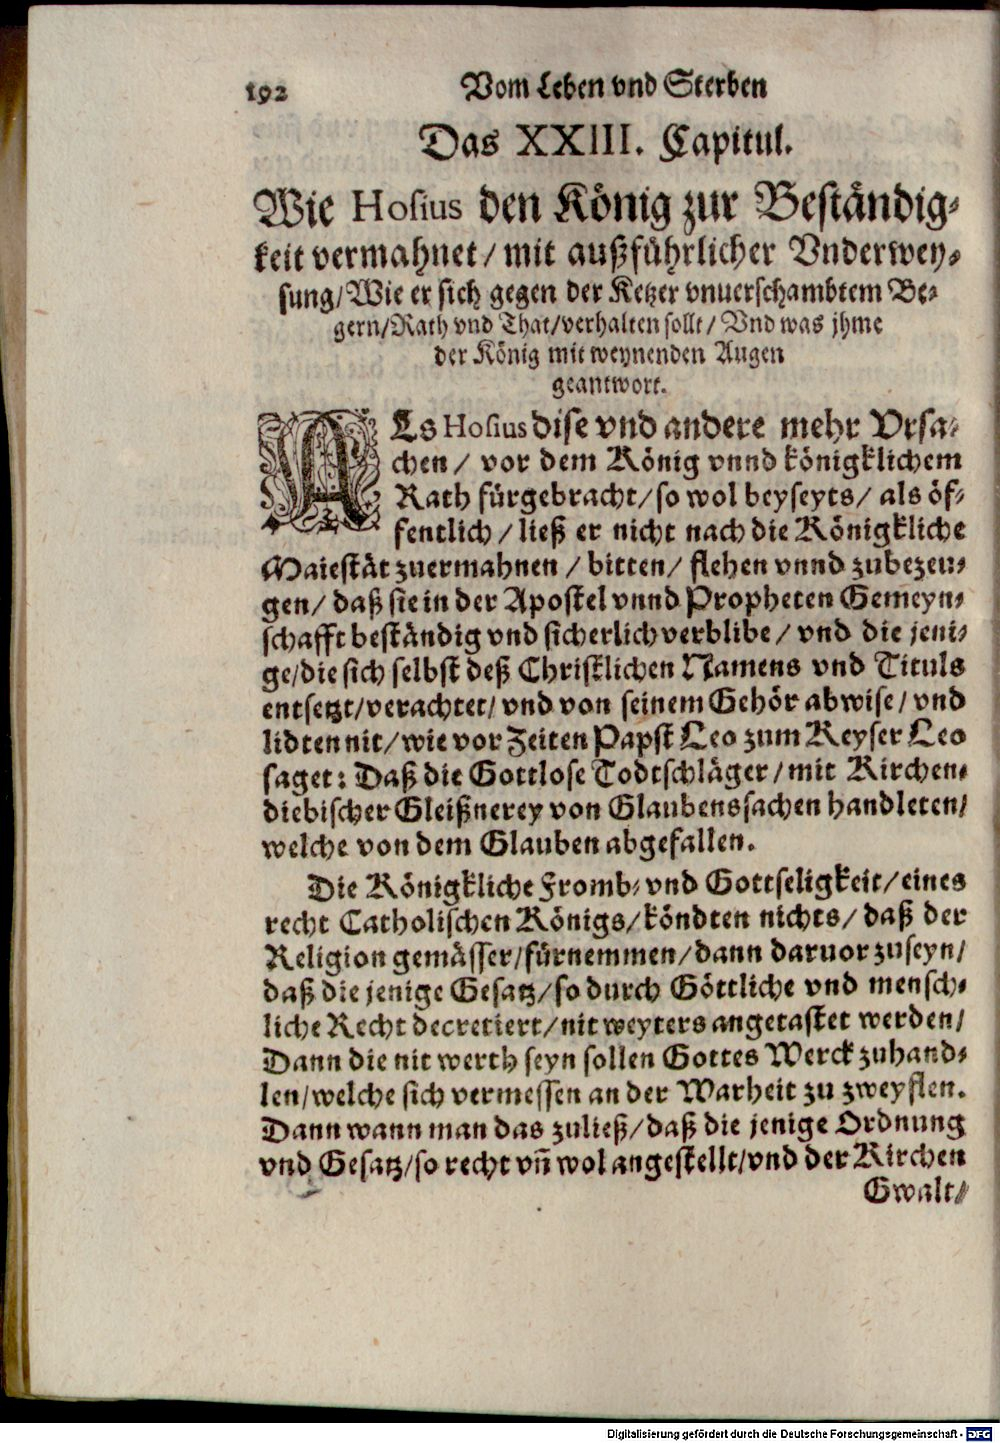 192 Vom Leben vnd Sterben
Das XXIII. Capitul.
Wie Hosius den König zur Beständig-
keit vermahnet/ mit außführlicher Vnderwey-
sung/ Wie er sich gegen der Ketzer vnuerschambtem Be-
gern/ Rath vnd That/ verhalten sollt/ Vnd was jhme
der König mit weynenden Augen
geantwort.
ALs Hosius dise vnd andere mehr Vrsa-
chen/ vor dem König vnnd königklichem
Rath fürgebracht/ so wol beyseyts/ als öf-
fentlich/ ließ er nicht nach die Königkliche
Maiestät zuermahnen/ bitten/ flehen vnnd zubezeu-
gen/ daß sie in der Apostel vnnd Propheten Gemeyn-
schafft beständig vnd sicherlich verblibe/ vnd die jeni-
ge/ die sich selbst deß Christlichen Namens vnd Tituls
entsetzt/ verachtet/ vnd von seinem Gehör abwise/ vnd
lidten nit/ wie vor Zeiten Papst Leo zum Keyser Leo
saget: Daß die Gottlose Todtschläger/ mit Kirchen-
diebischer Gleißnerey von Glaubenssachen handleten/
welche von dem Glauben abgefallen.
Die Königkliche Fromb- vnd Gottseligkeit/ eines
recht Catholischen Königs/ köndten nichts/ daß der
Religion gemässer/ fürnemmen/ dann daruor zuseyn/
daß die jenige Gesatz/ so durch Göttliche vnd mensch-
liche Recht decretiert/ nit weyters angetastet werden/
Dann die nit werth seyn sollen Gottes Werck zuhand-
len/ welche sich vermessen an der Warheit zu zweyflen.
Dann wann man das zuließ/ daß die jenige Ordnung
vnd Gesatz/ so recht vñ wol angestellt/ vnd der Kirchen
Gwalt/
Digitalisierung gefördert durch die Deutsche Forschungsgemeinschaft - DFG